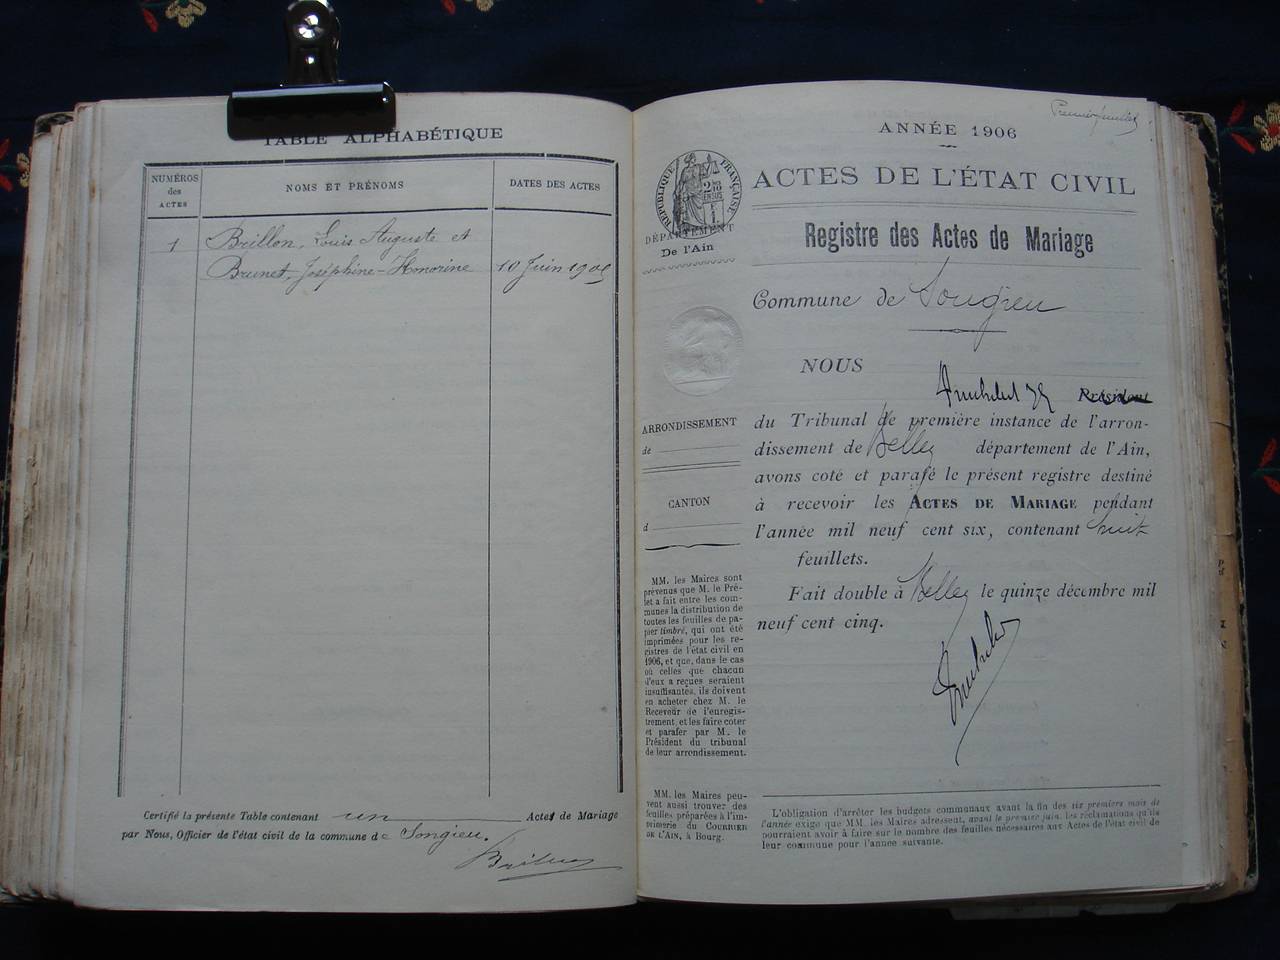 TABLE ALPHABÉTIQUE
NUMÉROS
des
ACTES
NOMS ET PRÉNOMS
DATES DES ACTES
1
Brillon, Louis Auguste et
Brunet, Joséphine-Honorine
10 Juin 1905
Certifié la présente Table contenant un Actes de Mariage
par Nous, Officier de l'état civil de la commune de Songieu.
Premier feuillet
ANNÉE 1906
ACTES DE L'ÉTAT CIVIL
RÉPUBLIQUE FRANÇAISE
DÉPARTEMENT
De l'Ain
Registre des Actes de Mariage
Commune de Songieu
NOUS
Président
du Tribunal de première instance de l'arron-
dissement de Belley département de l'Ain,
avons coté et parafé le présent registre destiné
à recevoir les ACTES DE MARIAGE pendant
l'année mil neuf cent six, contenant huit
feuillets.
Fait double à Belley le quinze décembre mil
neuf cent cinq.
ARRONDISSEMENT
de
CANTON
d
MM. les Maires sont
prévenus que M. le Pré-
fet a fait entre les com-
munes la distribution de
toutes les feuilles de pa-
pier timbré, qui ont été
imprimées pour les re-
gistres de l'état civil en
1906, et que, dans le cas
où celles que chacun
d'eux a reçues seraient
insuffisantes, ils doivent
en acheter chez M. le
Receveur de l'enregis-
trement, et les faire coter
et parafer par M. le
Président du tribunal
de leur arrondissement.
MM. les Maires peu-
vent aussi trouver des
feuilles préparées à l'im-
primerie du COURRIER
DE L'AIN, à Bourg.
L'obligation d'arrêter les budgets communaux avant la fin des six premiers mois de
l'année exige que MM. les Maires adressent, avant le premier juin, les réclamations qu'ils
pourraient avoir à faire sur le nombre des feuilles nécessaires aux Actes de l'état civil de
leur commune pour l'année suivante.